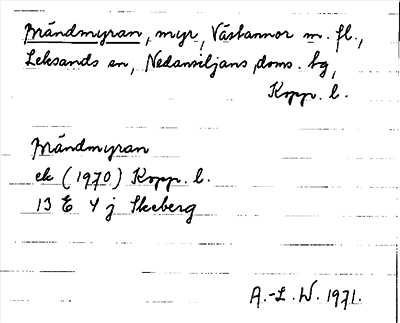 Brändmyran, myr, Västannor m. fl.,
Leksands sn, Nedansiljans doms. hg,
Kopp. l.
Brändmyran
ek (1970) Kopp. l.
13 E 4 j Skeberg
A.-L. W. 1971.